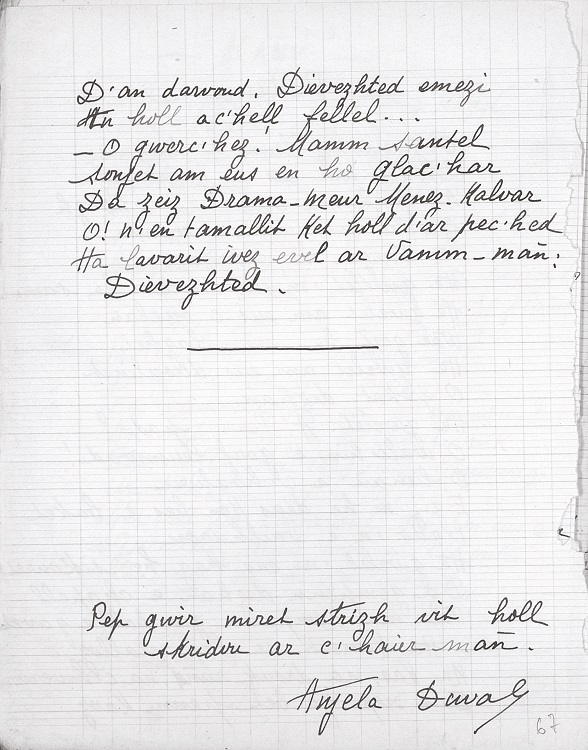 D'an darvoud. Dievezhted emezi
Hn holl a c'hell fellel...
– O gwerc'hez! Mamm santel
Sonjet am eus en ho glac'har
Da zeiz Drama-meur Menez-Kalvar
O! n'en tamallit ket holl d'ar pec'hed
Ha lavarit ivez evel ar Vamm-mañ:
Dievezhted.
Pep gwir miret strizh vit holl
skridou ar c'haier mañ.
Anjela Duval
67